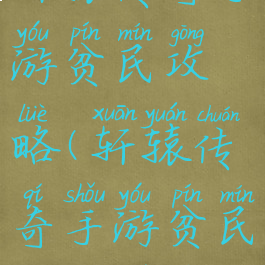 yóu pín mín gōng
游贫民攻
lüè xuān yuán chuán
略(轩辕传
qí shǒu yóu pín mín
奇手游贫民